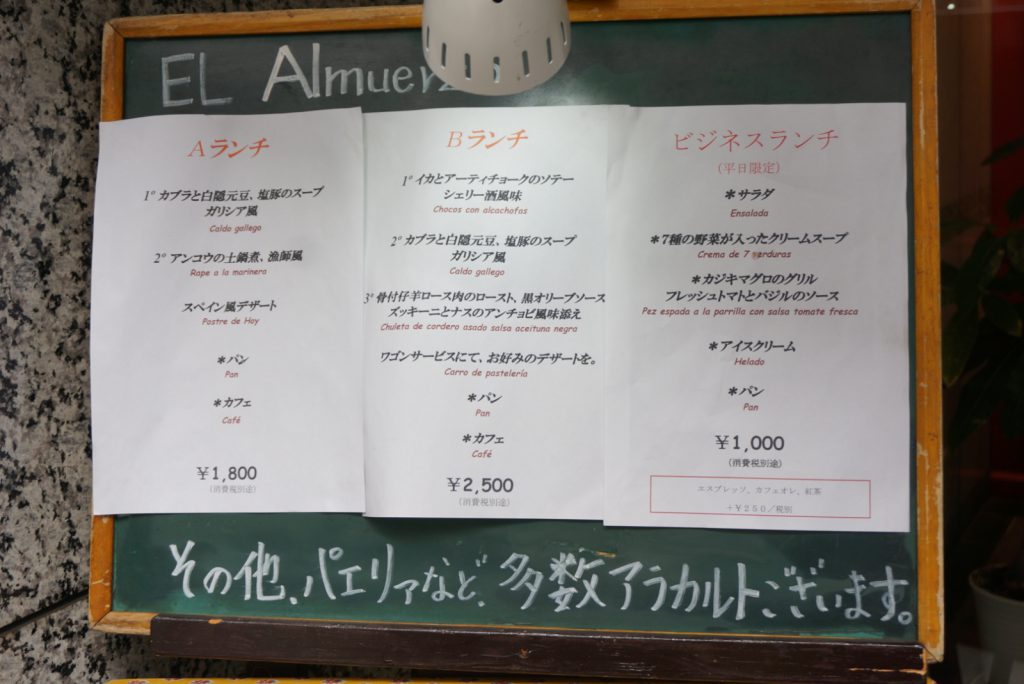 EL Almuerz
Aランチ
1º カブラと白隠元豆、塩豚のスープ
ガリシア風
Caldo gallego
2º アンコウの土鍋煮、漁師風
Rape a la marinera
スペイン風デザート
Postre de Hoy
＊パン
Pan
＊カフェ
Café
￥1,800
(消費税別途)
Bランチ
1º イカとアーティチョークのソテー
シェリー酒風味
Chocos con alcachofas
2º カブラと白隠元豆、塩豚のスープ
ガリシア風
Caldo gallego
3º 骨付仔羊ロース肉のロースト、黒オリーブソース
ズッキーニとナスのアンチョビ風味添え
Chuleta de cordero asado salsa aceituna negra
ワゴンサービスにて、お好みのデザートを。
Carro de pastelería
＊パン
Pan
＊カフェ
Café
￥2,500
(消費税別途)
ビジネスランチ
(平日限定)
＊サラダ
Ensalada
＊7種の野菜が入ったクリームスープ
Crema de 7 verduras
＊カジキマグロのグリル
フレッシュトマトとバジルのソース
Pez espada a la parrilla con salsa tomate fresca
＊アイスクリーム
Helado
＊パン
Pan
￥1,000
(消費税別途)
エスプレッソ、カフェオレ、紅茶
＋￥250／税別
その他、パエリアなど、多数アラカルトございます。